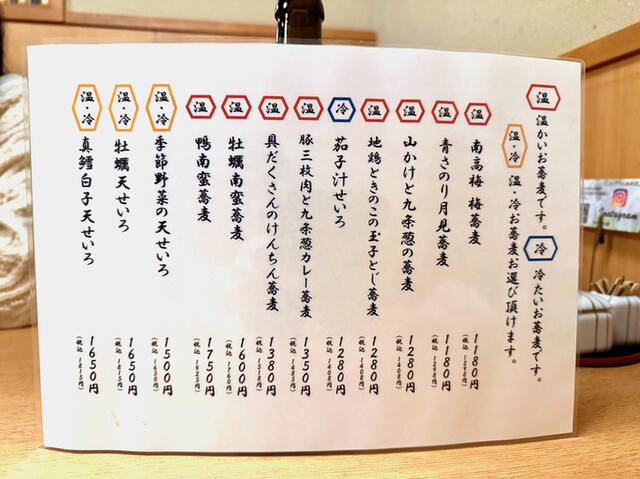 温 温かいお蕎麦です。 冷 冷たいお蕎麦です。
温・冷 温・冷お蕎麦お選び頂けます。
温 南高梅 梅蕎麦 1180円 (税込 1298円)
温 青さのり月見蕎麦 1180円 (税込 1298円)
温 山かけと九条葱の蕎麦 1280円 (税込 1408円)
温 地鶏ときのこの玉子とじ蕎麦 1280円 (税込 1408円)
冷 茄子汁せいろ 1280円 (税込 1408円)
温 豚三枚肉と九条葱カレー蕎麦 1350円 (税込 1485円)
温 具だくさんのけんちん蕎麦 1380円 (税込 1518円)
温 牡蠣南蛮蕎麦 1600円 (税込 1760円)
温 鴨南蛮蕎麦 1750円 (税込 1925円)
温・冷 季節野菜の天せいろ 1500円 (税込 1650円)
温・冷 牡蠣天せいろ 1650円 (税込 1815円)
温・冷 真鱈白子天せいろ 1650円 (税込 1815円)
Instagram